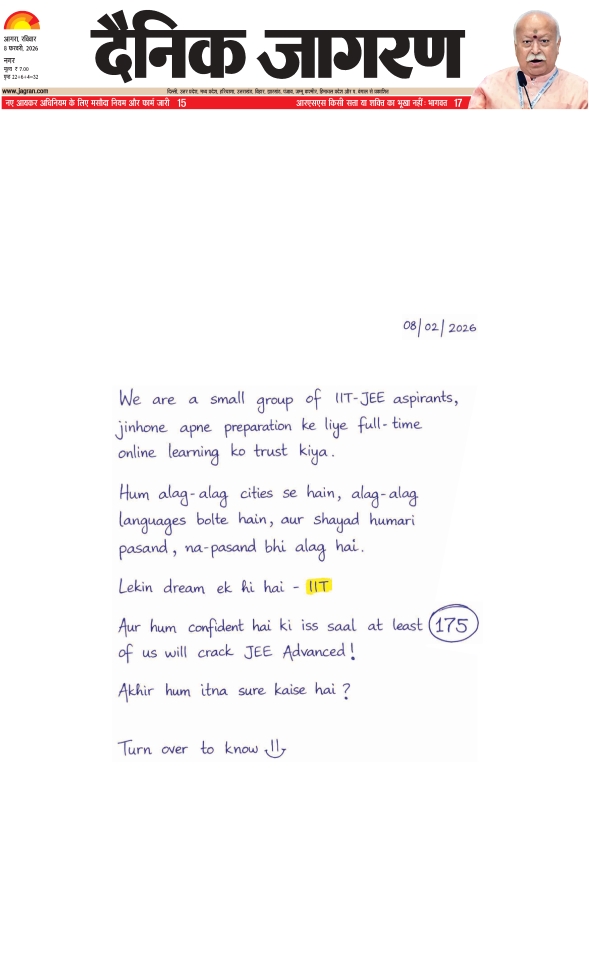 आगरा, रविवार
8 फरवरी, 2026
नगर
मूल्य ₹ 7.00
पृष्ठ 22+6+4=32
दैनिक जागरण
www.jagran.com
दिल्ली, उत्तर प्रदेश, मध्य प्रदेश, हरियाणा, उत्तराखंड, बिहार, झारखंड, पंजाब, जम्मू कश्मीर, हिमाचल प्रदेश और प. बंगाल से प्रकाशित
नए आयकर अधिनियम के लिए मसौदा नियम और फार्म जारी 15
आरएसएस किसी सत्ता या शक्ति का भूखा नहीं: भागवत 17
08/02/2026
We are a small group of IIT-JEE aspirants,
jinhone apne preparation ke liye full-time
online learning ko trust kiya.
Hum alag-alag cities se hain, alag-alag
languages bolte hain, aur shayad humari
pasand, na-pasand bhi alag hai.
Lekin dream ek hi hai - IIT
Aur hum confident hai ki iss saal at least 175
of us will crack JEE Advanced!
Akhir hum itna sure kaise hai?
Turn over to know